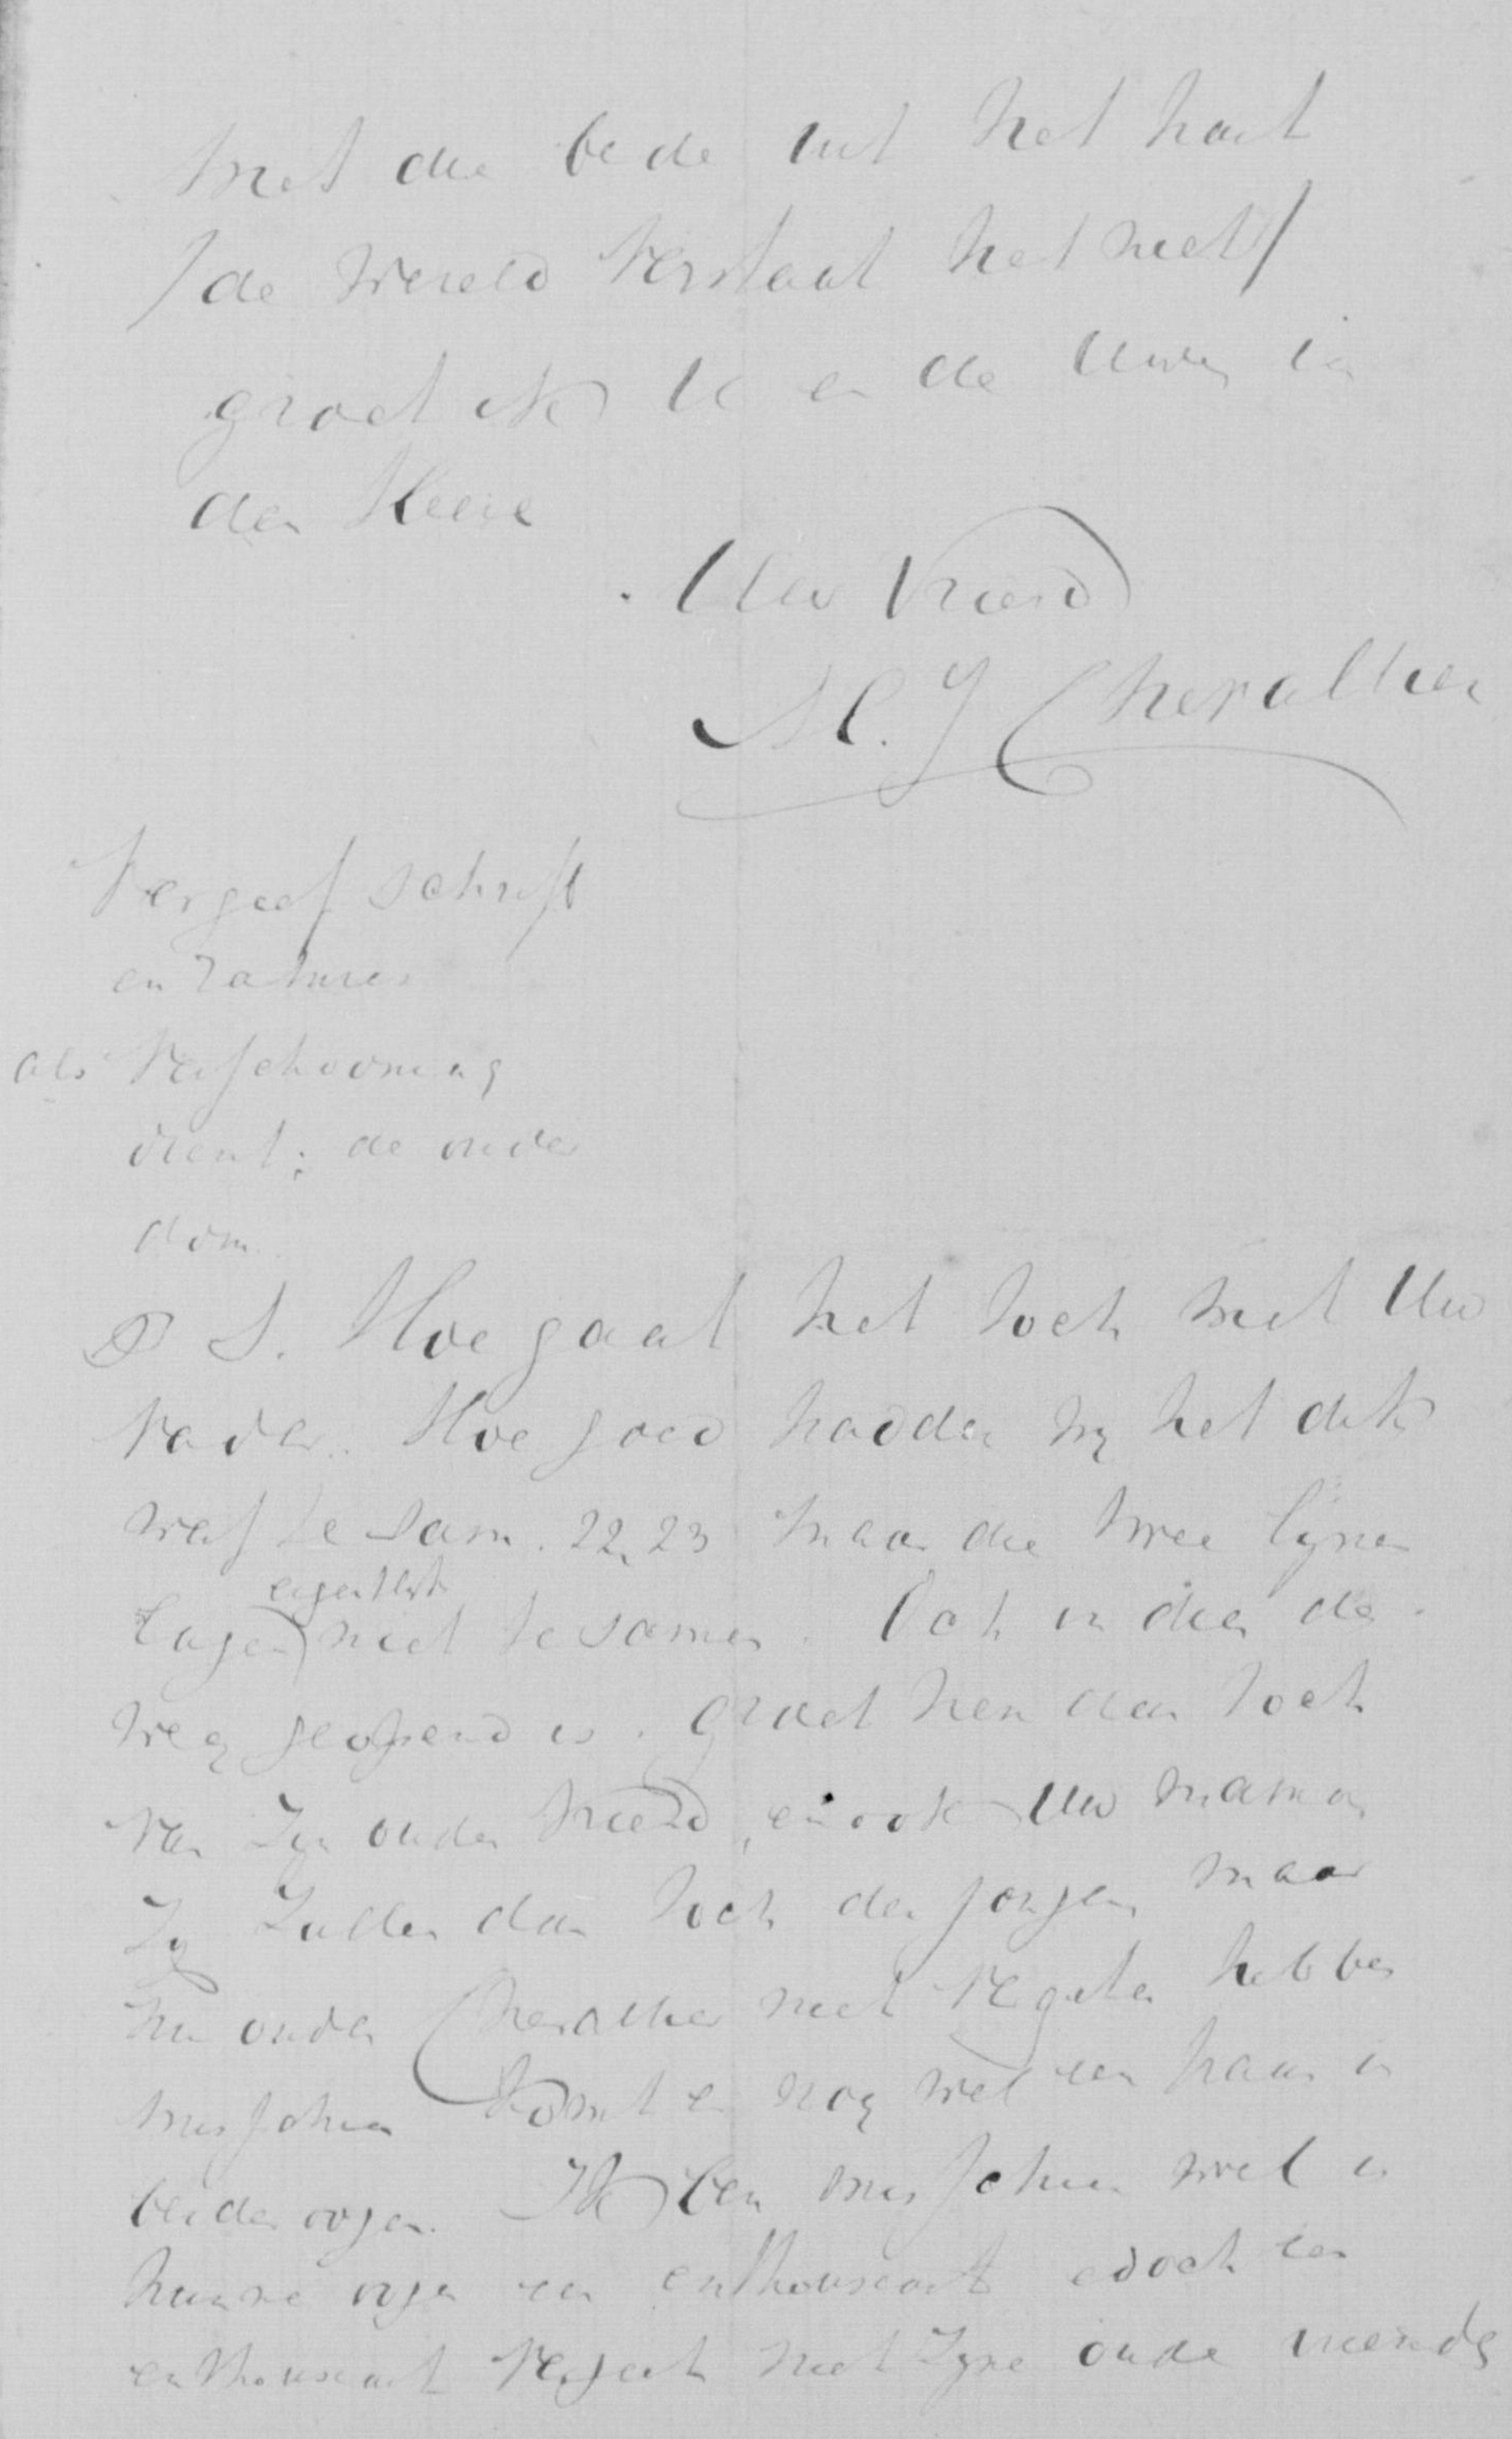 Met die bede uit het hart
/de wereld verstaat het niet/
groet ik U en de Uwen in
den Heere
Uw Vriend
H. J Chevallier
Vergeef schrift
en ratures
als verschooning
dient: de ouder
dom.
P S. Hoe gaat het toch met Uw
Vader. Hoe goed hadden wy het dik
werf te sam. 22, 23 maar die twee lynen
lagen eigentlyk niet te samen. Och in dien de
weg geopend is. groet hen dan toch
van zyn ouden vriend, en ook Uw mama
Zy zullen dan toch den jongen maar
nu ouden Chevallier niet vergeten hebben
misschien komt er nog wel een traan in
beider oogen. Ik ben misschien wel in
hunne oogen een enthousiast edoch een
enthousiast vergeet niet zyne oude vrienden